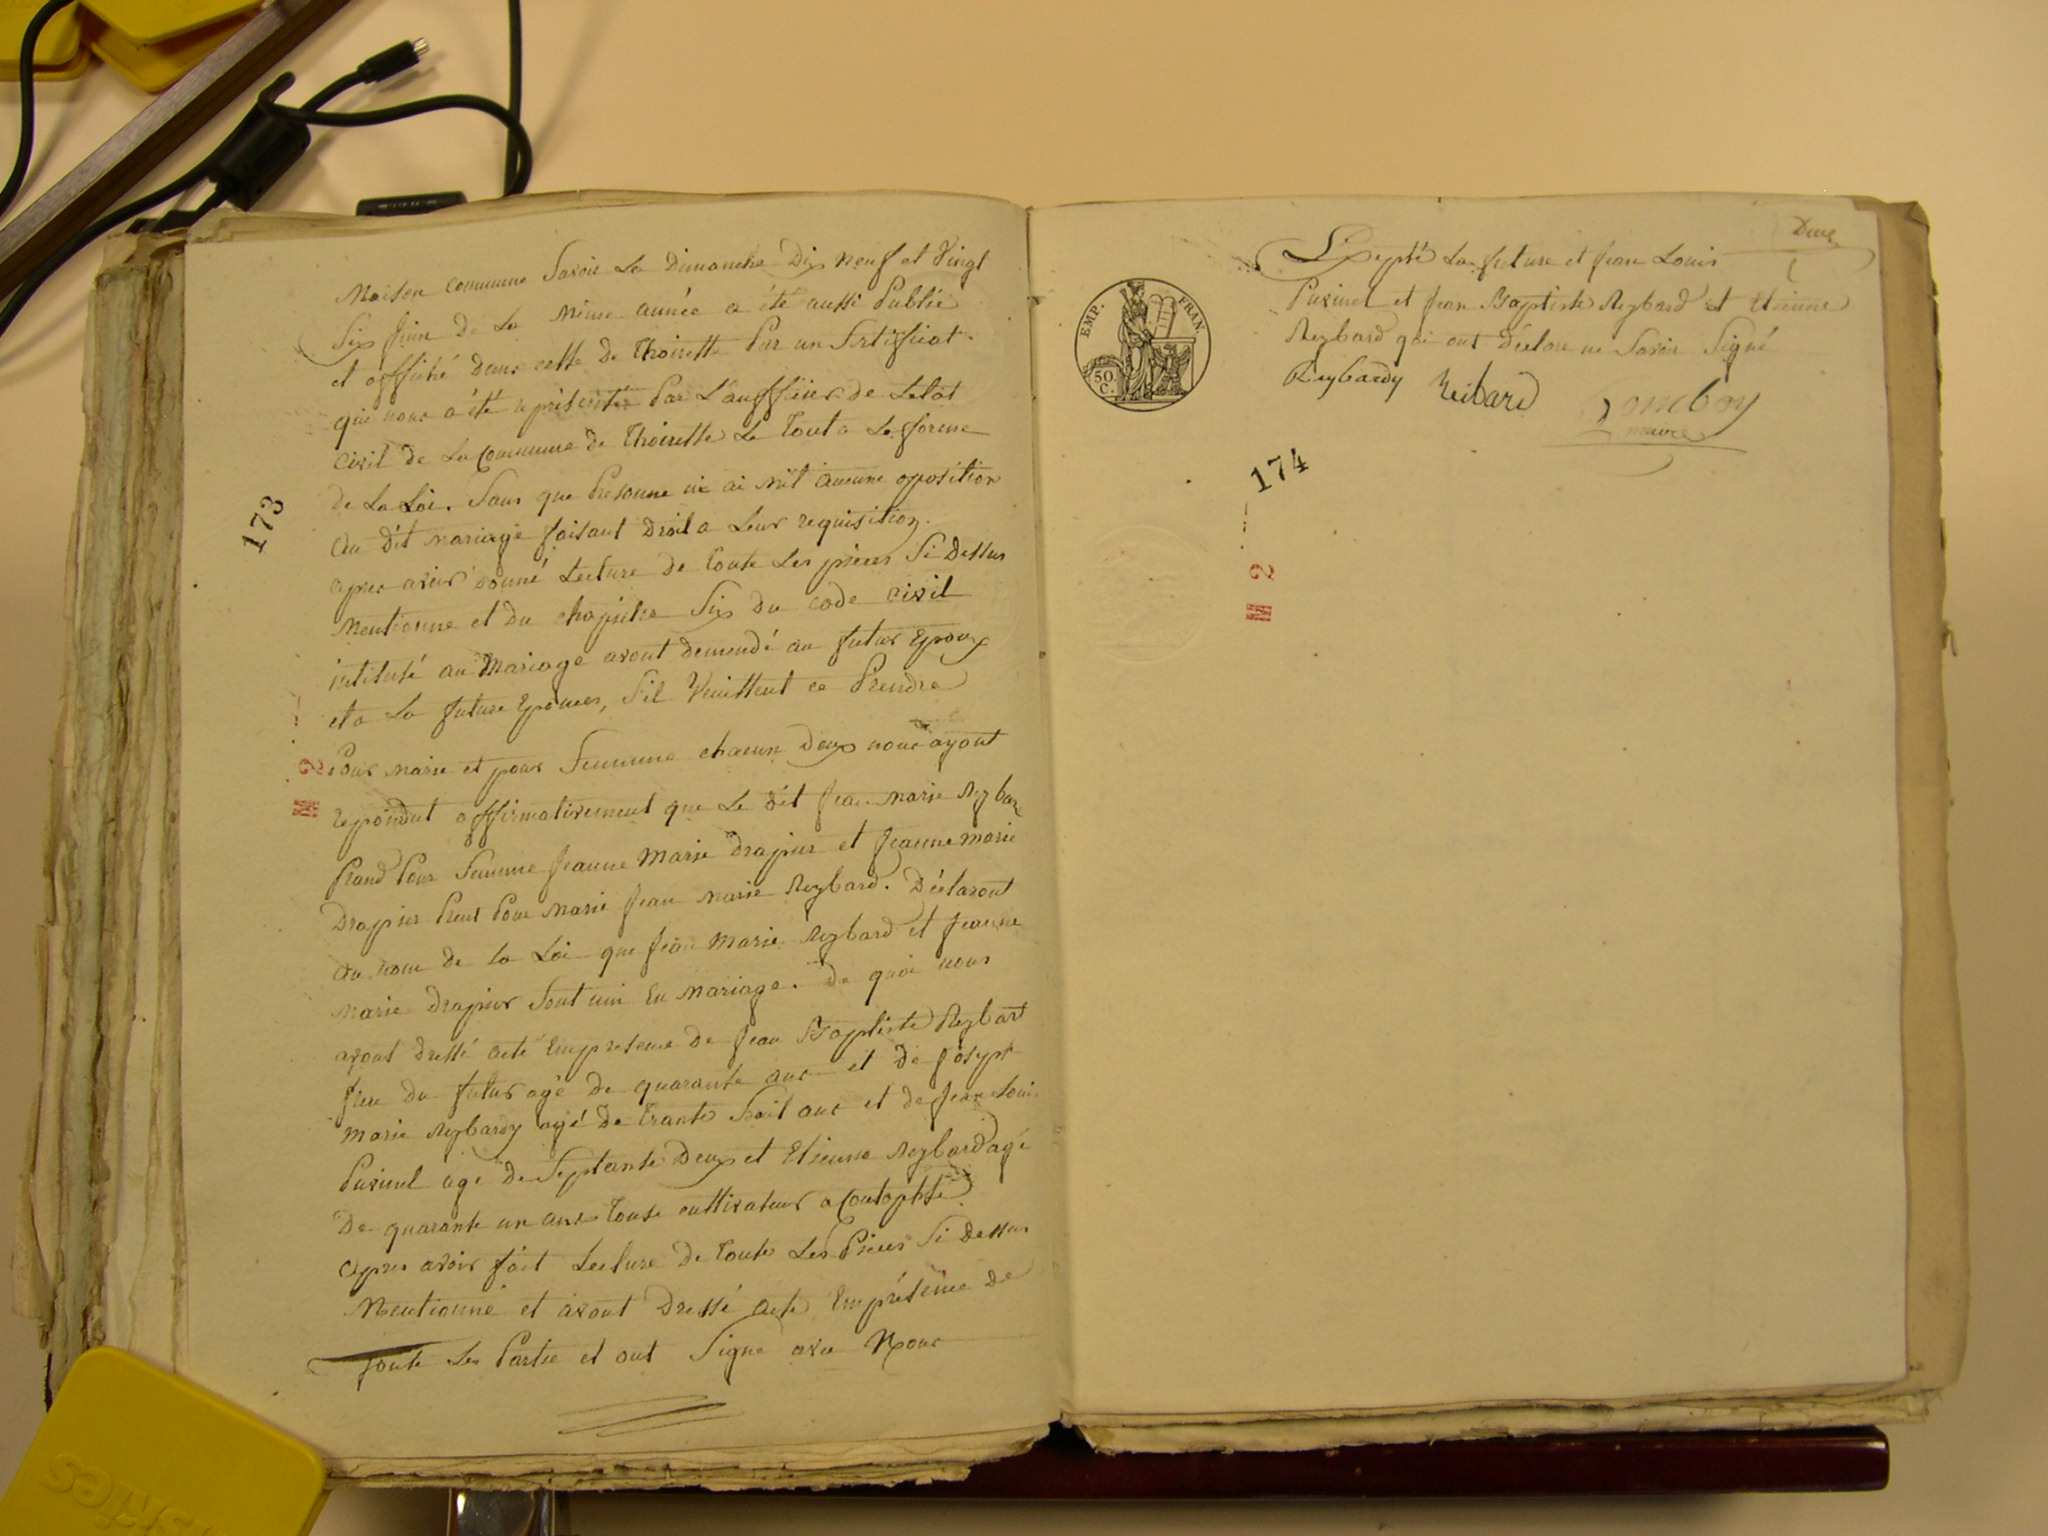 173
Maison commune Savoir Le Dimanche Dix neuf et Vingt
Six Juin De La même année a été aussi Publié
et affiché dans cette de Thoirette Par un Sertifficat
que nous a été représenté Par L'aufficier de Letat
Civil de La Commune de Thoirette Le Tout a La forme
de La Loi. Sans que Presonne ni ai mit aucune oposition
au dit mariage faisant Droit a Leur requisition.
apres avoir donné Lecture de Toute Les pieces Si Dessus
Mentionne et Du chapitre Six Du code civil
intitulé au Mariage avont demendé au futur Epoux
et a La future Epouses, S'il Veuillent ce Prendre
Pour marie et pour Femme chacun Deux nous ayont
repondut affirmativement que Le dit Jean Marie Reybar
Prand Pour Femme Jeanne Marie Drapier et Jeanne Marie
Drapier Prent Pour Marie Jean Marie Reybard. Déclaront
au nom de La Loi que Jean Marie Reybard et Jeanne
Marie Drapier Sont uni En Mariage. De quoi nous
avont dressé acte Empresence De Jean Baptiste Reybart
frere Du futur agé De quarante ans et De Josept
Marie Reybardy agé De Trante huit ans et de Jean Louis
agé De Septante Deux et Etienne Reybard agé
De quarante un ans Touse cultivateur a
apres avoir fait Lecture De Toute Les Pieces Si Dessus
Mentionné et avont Dressé acte Empreséнce De
Toute Les Partie et ont Signe avec Nous
2
Exepté La future et Jean Louis
et Jean Baptiste Reybard et Etienne
Reybard qui ont Déclare ne Savoir Signé
Reybardy Reibard
maire
EMP. FRAN.
50 C.
174
2